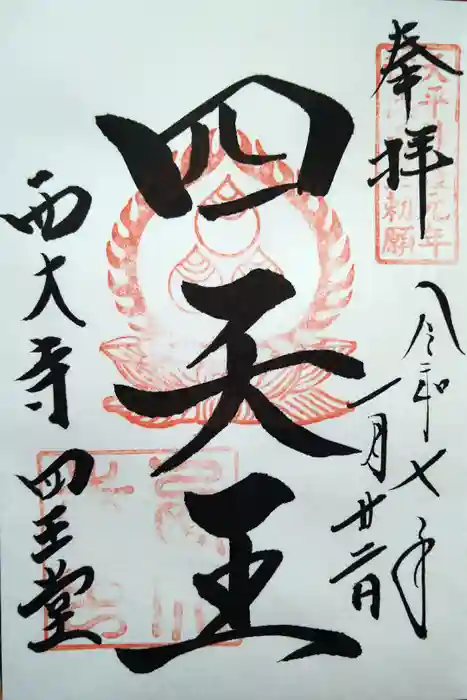 奉拝
令和七年
一月廿二日
四天王
西大寺
四王堂